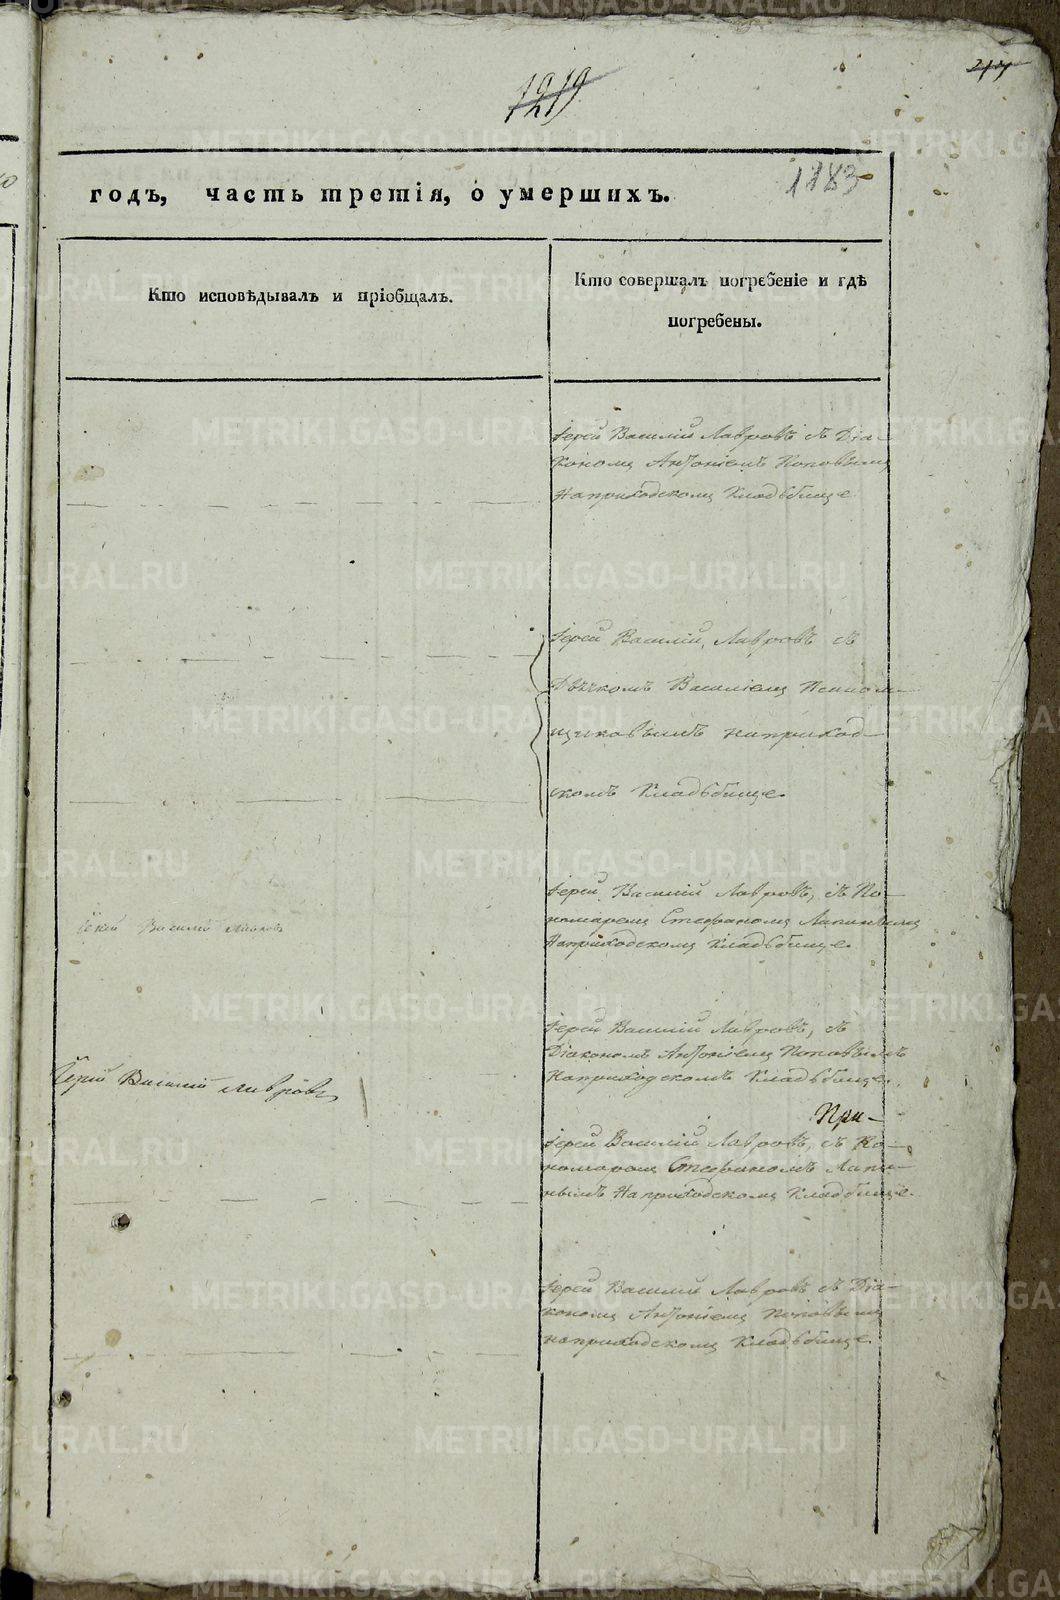 1219
годъ, часть третія, о умершихъ.
1183
Кто исповѣдывалъ и пріобщалъ.
Кто совершалъ погребеніе и гдѣ
погребены.
Іерей Василій Лавровъ съ Діа-
кономъ Антоніемъ Поповымъ
на приходскомъ Кладьбище
Іерей Василій Лавровъ съ
Дьячкомъ Василіемъ
на приход
скомъ Кладьбище.
Іерей Василій Лавровъ, съ По-
номаремъ Стефаномъ Лапинымъ
На приходскомъ Кладьбище.
Іерей Василій Лавровъ
Іерей Василій Лавровъ, съ
Діакономъ Антоніемъ Поповымъ
на приходскомъ Кладьбище.
Іерей Василій Лавровъ
При-
Іерей Василій Лавровъ, съ По-
номаремъ Стефаномъ Лапи-
нымъ На приходскомъ Кладбище.
Іерей Василій Лавровъ съ Діа-
кономъ Антоніемъ Поповымъ
на приходскомъ Кладьбище.
METRIKI.GASO-URAL.RU